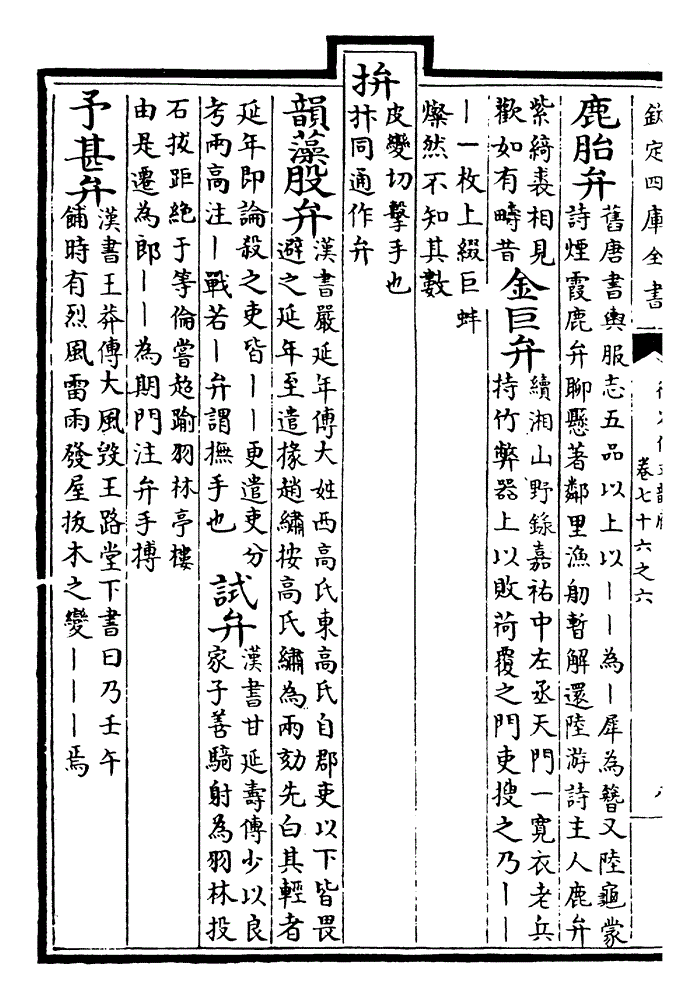 欽定四庫全書
卷七十六之六
鹿胎弁
舊唐書輿服志五品以上以丨丨為丨犀為簪又陸龜蒙
詩煙霞鹿弁聊懸著鄰里漁舠暫解還陸游詩主人鹿弁
紫綺裘相見
歡如有疇昔
金巨弁
續湘山野錄嘉祐中左丞天門一寛衣老兵
持竹弊器上以敗荷覆之門吏搜之乃丨丨
丨一枚上綴巨蚌
燦然不知其數
拚
皮變切擊手也
抃同通作弁
韻藻
股弁
漢書嚴延年傳大姓西高氏東高氏自郡吏以下皆畏
避之延年至遣掾趙繡按高氏繡為兩劾先白其輕者
延年即論殺之吏皆丨丨更遣吏分
考兩高注丨戰若丨弁謂撫手也
試弁
漢書甘延壽傳少以良
家子善騎射為羽林投
石拔距絶于等倫嘗超踰羽林亭樓
由是遷為郎丨丨為期門注弁手搏
予甚弁
漢書王莽傳大風毀王路堂下書曰乃壬午
餔時有烈風雷雨發屋抜木之變丨丨丨焉